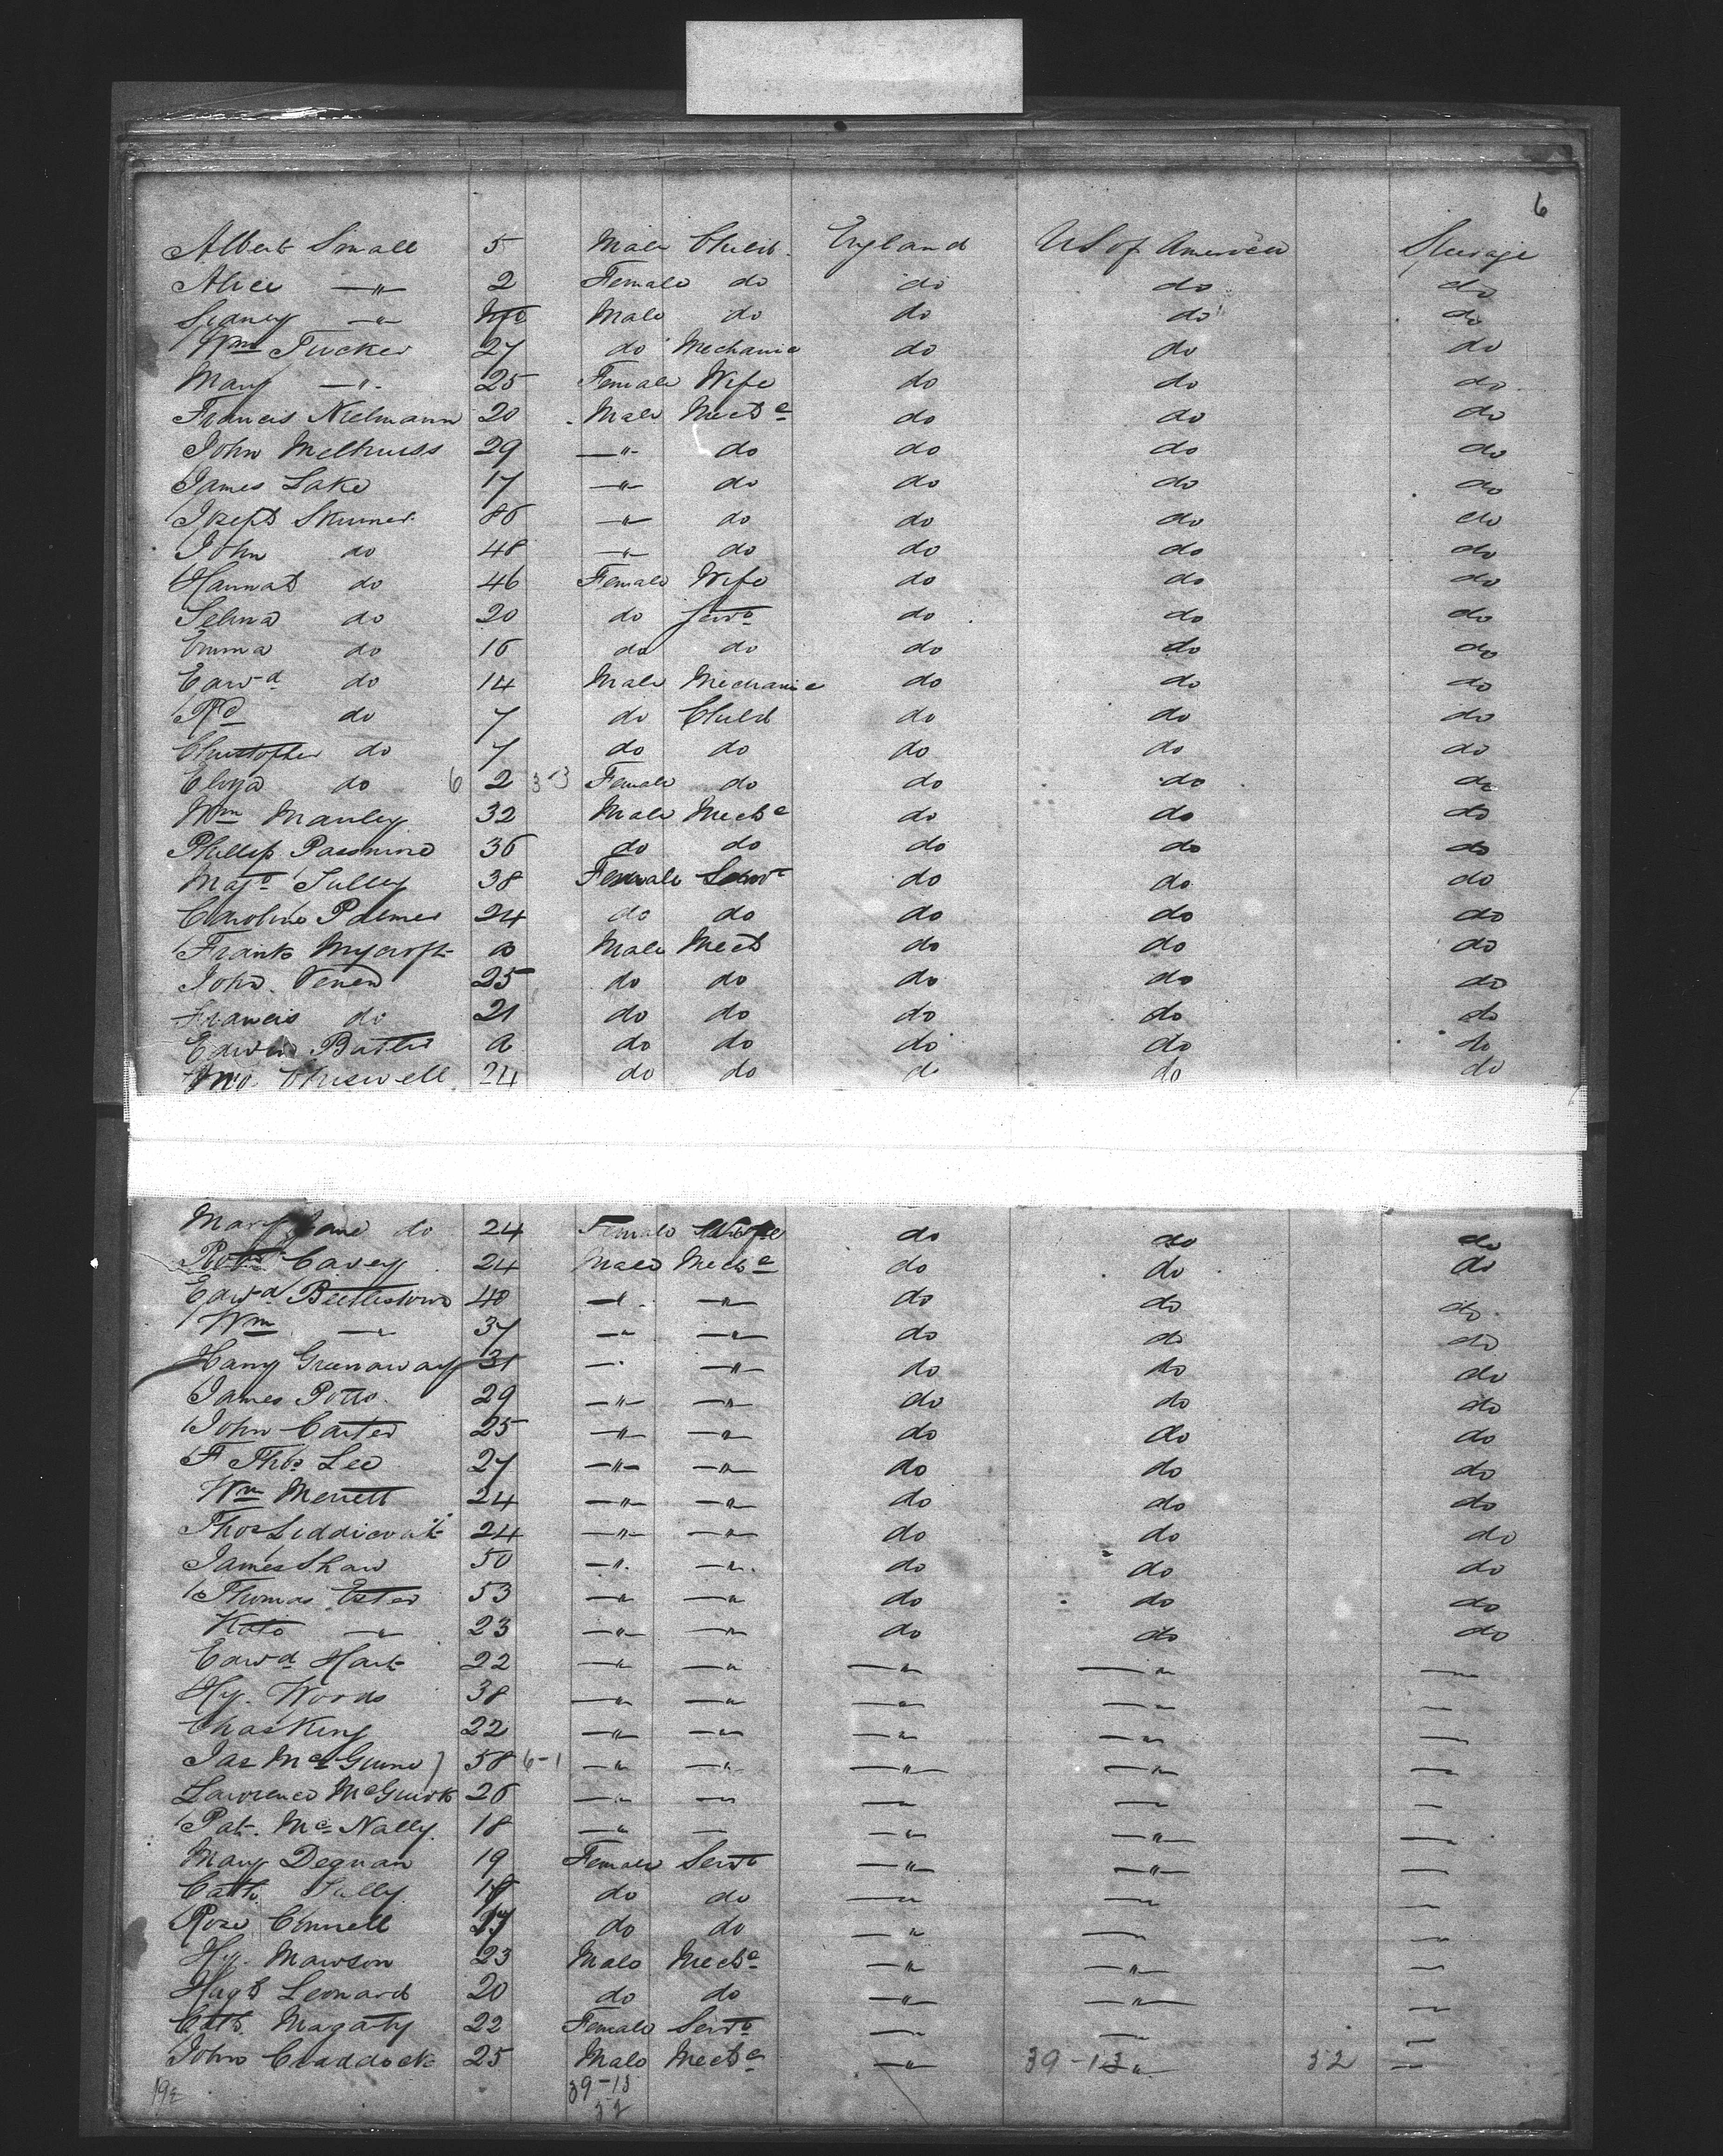 6
Albert Small 5 Male Child England US of America Steerage
Alice —"— 2 Female do do do do
Sydney —"— Inft Male do do do do
Wm Tucker 27 do Mechanic do do do
Mary —"— 25 Female Wife do do do
Francis Nielmann 20 Male Mechc do do do
John Melhuiss 29 —"— do do do do
James Lake 17 —"— do do do do
Joseph Skinner —"— do do do do
John do 48 —"— do do do do
Hannah do 46 Female Wife do do do
Selina do 20 do Servt do do do
Emma do 16 do do do do do
Edwd do 14 Male Mechanic do do do
Rd do 7 do Child do do do
Christopher do 7 do do do do do
Eliza do 6 2 Female do do do do
Wm Manley 32 Male Mechc do do do
Phillip Passmore 36 do do do do do
Tulley 38 Female Servt do do do
Caroline Palmer 24 do do do do do
Frank Mycroft a Male Mech do do do
John 25 do do do do do
Francis do 21 do do do do do
Edwin Butler a do do do do do
24 do do do do
Mary Jane do 24 Female Wife do do do
Robt Cavey 24 Male Mechc do do do
Edwd Beetlestone 40 —"— —"— do do do
Wm —"— 37 —"— —"— do do do
Harry Greenaway 31 —"— —"— do do do
James Potts 29 —"— —"— do do do
John Carter 25 —"— —"— do do do
F Thos Lee 27 —"— —"— do do do
Wm Merrett 24 —"— —"— do do do
Thos Liddicoat 24 —"— —"— do do do
James Shaw 50 —"— —"— do do do
Thomas Ester 53 —"— —"— do do do
Kate —"— 23 —"— —"— do do do
Edwd Hart 22 —"— —"— —"— —"— —
Hy. Woods 38 —"— —"— —"— —"— —
Chas King 22 —"— —"— —"— —"— —
Jas 58 6-1 —"— —"— —"— —"— —
Lawrence McGuirk 26 —"— —"— — — —
Pat. McNally 18 —"— — —"— —"— —
Mary Degnan 19 Female Servt —"— —"— —
Cath. Tully 18 do do —"— —"— —
Rose Connell do do —"— — —
Hy. Mawson 23 Male Mechc —"— —"— —
Hugh Leonard 20 do do —"— —"— —
Cath. Magaty 22 Female Servt — — —
John Craddock 25 Male Mechc —"— 39-13 52 —
39-13
52